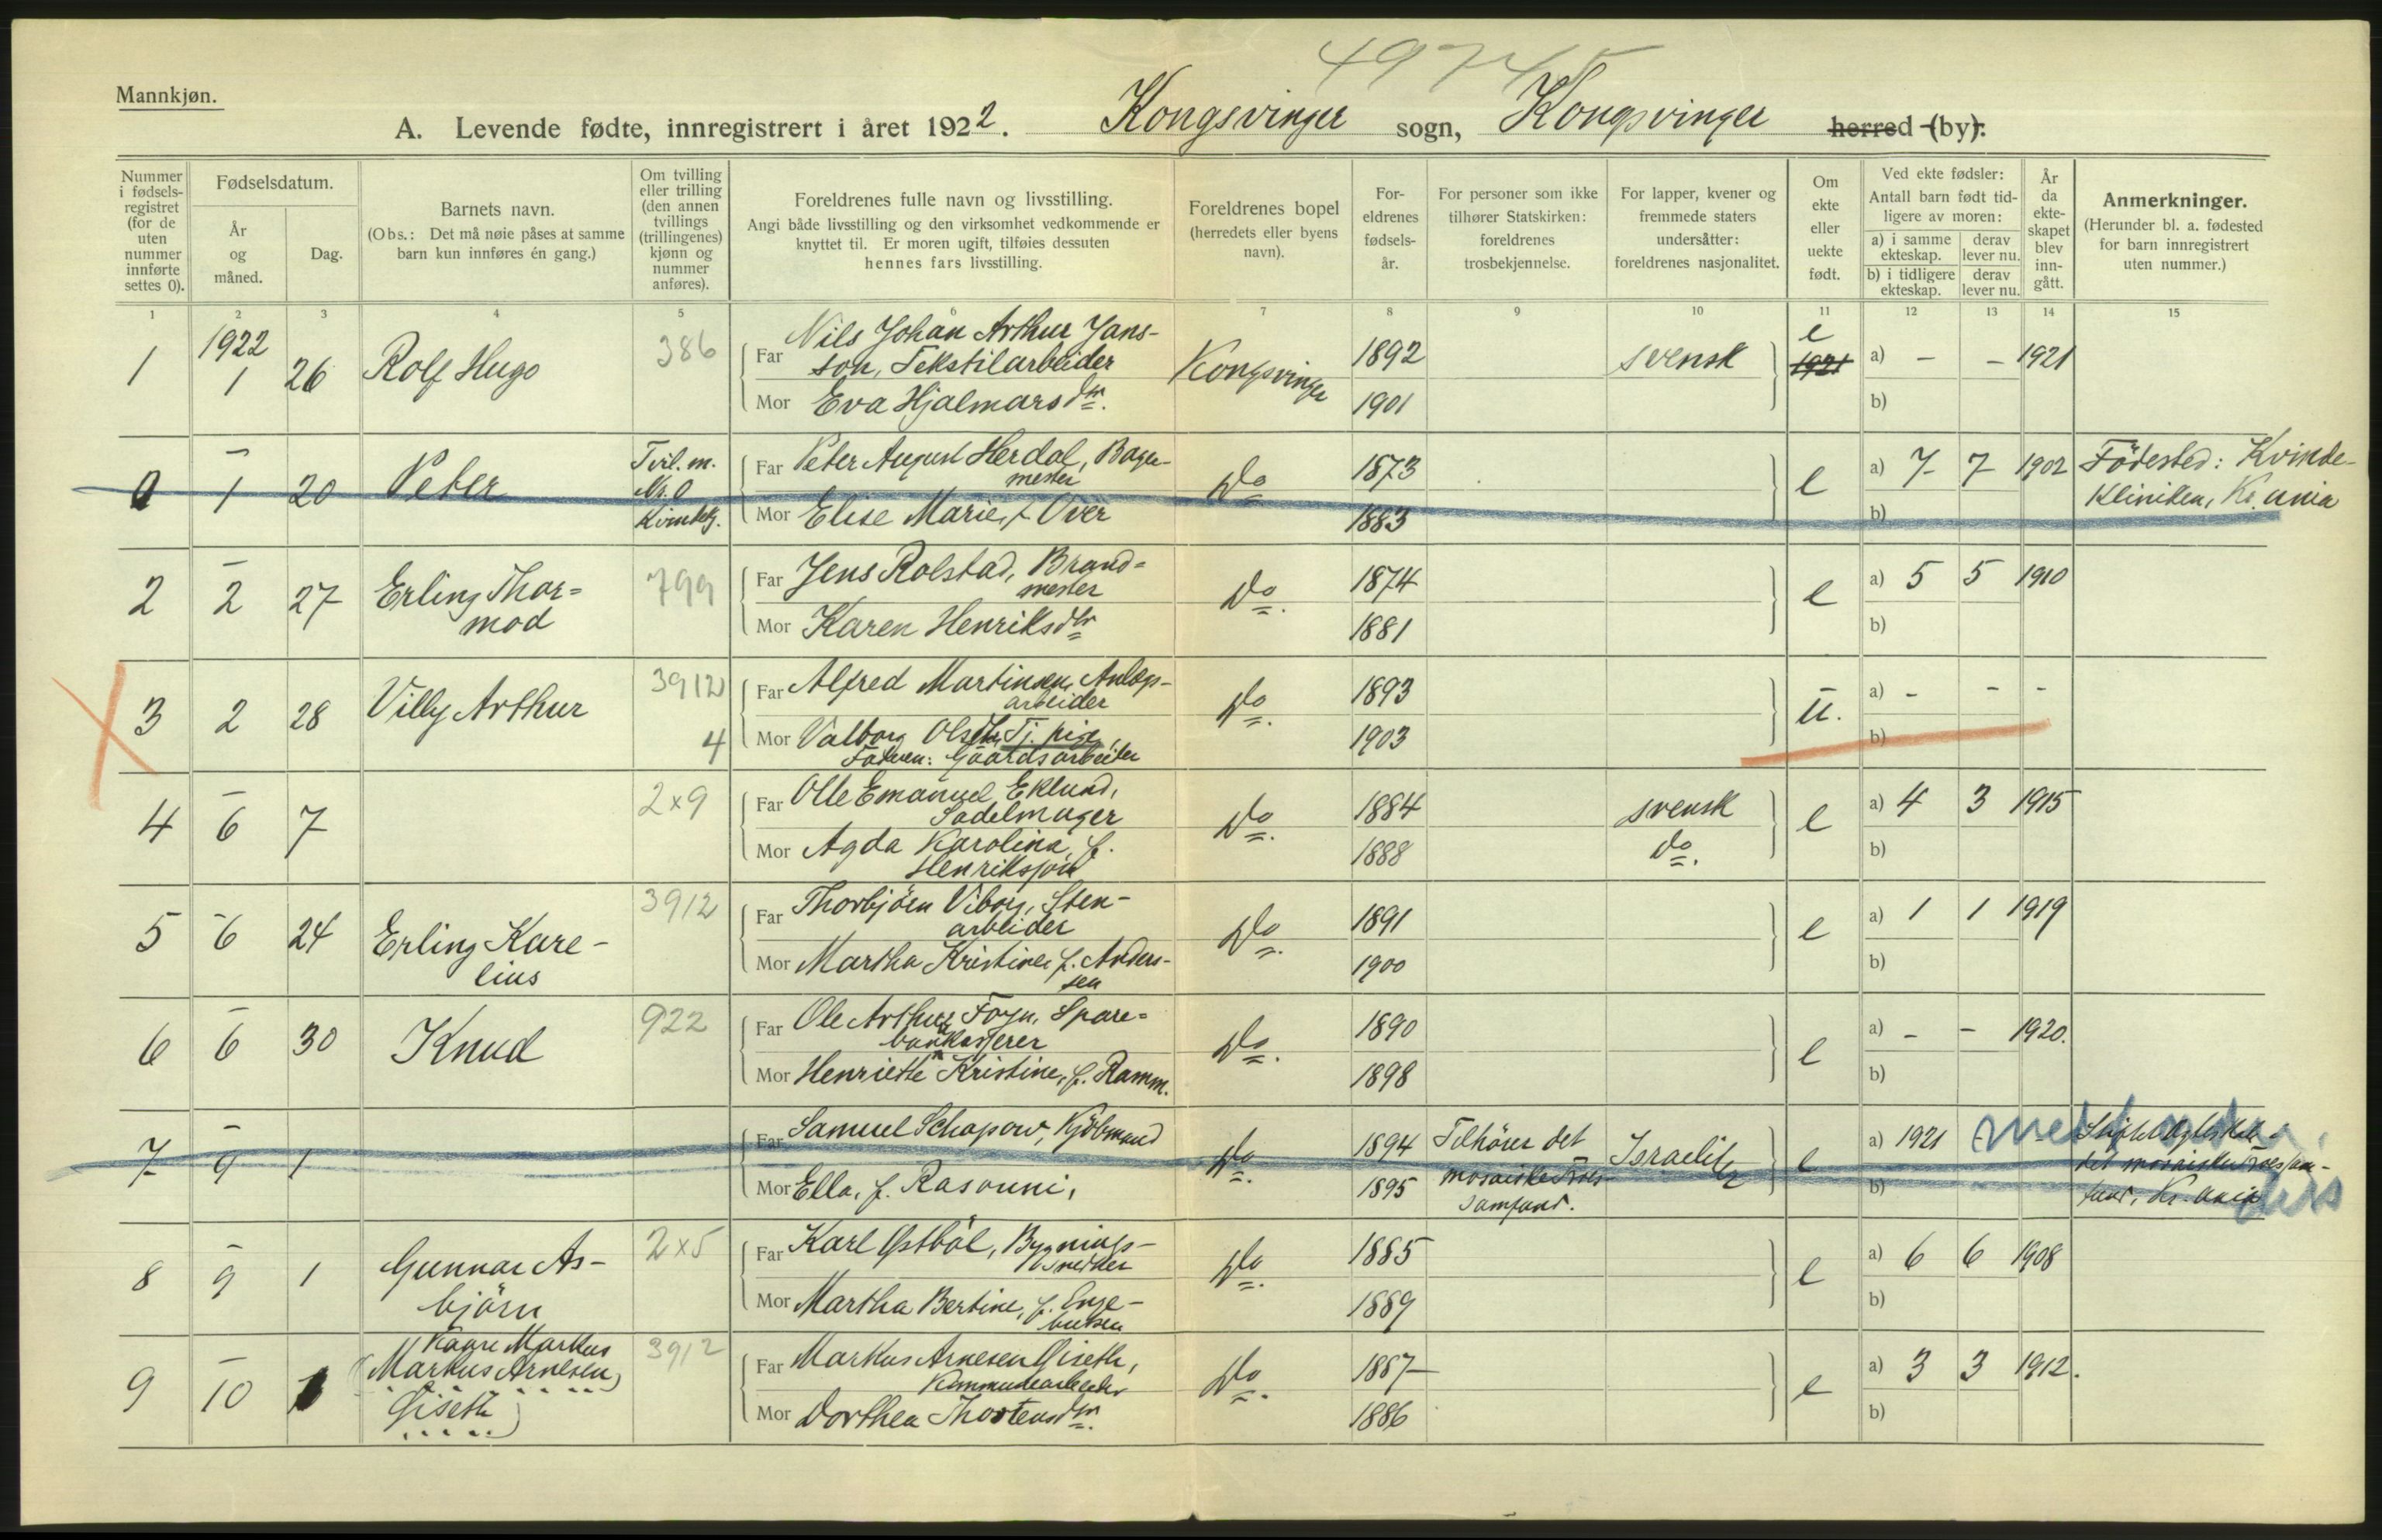 49745
Mannkjøn.
A. Levende fødte, innregistrert i året 1922. Kongsvinger sogn, Kongsvinger herred (by).
Nummer i fødselsregistret (for de uten nummer innførte settes 0).
Fødselsdatum.
År og måned.
Dag.
Barnets navn.
(Obs.: Det må nøie påses at samme barn kun innføres én gang.)
Om tvilling eller trilling (den annen tvillings (trillingenes) kjønn og nummer anføres).
Foreldrenes fulle navn og livsstilling.
Angi både livsstilling og den virksomhet vedkommende er knyttet til. Er moren ugift, tilføies dessuten hennes fars livsstilling.
Foreldrenes bopel (herredets eller byens navn).
Foreldrenes fødselsår.
For personer som ikke tilhører Statskirken: foreldrenes trosbekjennelse.
For lapper, kvener og fremmede staters undersåtter: foreldrenes nasjonalitet.
Om ekte eller uekte født.
Ved ekte fødsler: Antall barn født tidligere av moren:
a) i samme ekteskap. derav lever nu.
b) i tidligere ekteskap. derav lever nu.
År da ekteskapet blev inngått.
Anmerkninger.
(Herunder bl. a. fødested for barn innregistrert uten nummer.)
1 2 3 4 5 6 7 8 9 10 11 12 13 14 15
1 1922 1 26 Rolf Hugo 386
Far Nils Johan Arthur Jans-
son, Tekstilarbeider
Mor Eva Hjalmarsdtr.
Kongsvinger 1892 1901 svensk e 1921 a) - - 1921
b)
0 - 1 20 Peter Tvil. m. Nr. 0 Kvindekj.
Far Peter August Herdal, Bager-
mester
Mor Elise Marie, f. Over
Do 1873 1883 e a) 7 7 1902 Födested: Kvinde-
b) kliniken, Kr.ania
2 - 2 27 Erling Thor=
mod 799
Far Jens Rolstad, Brand=
mester
Mor Karen Henriksdtr
Do. 1874 1881 e a) 5 5 1910
b)
3 2 28 Villy Arthur 3912 4
Far Alfred Martinsen, Anlægs-
arbeider
Mor Valborg Olsdtr, Tj. pige,
Faderen: Gaardsarbeider
Do. 1893 1903 u. a) - - -
b)
4 - 6 7 2x9
Far Olle Emanuel Eklund,
Sadelmager
Mor Agda Karolina, f.
Henriksson
Do. 1884 1888 svensk do. e a) 4 3 1915
b)
5 - 6 24 Erling Kare-
lius 3912
Far Thorbjörn Viborg, Sten-
arbeider
Mor Martha Kristine, f. Anders-
sen
Do. 1891 1900 e a) 1 1 1919
b)
6 - 6 30 Knud 922
Far Ole Arthur Fogn, Spare=
bankkasserer
Mor Henriette Kristine, f. Ramm.
Do. 1890 1898 e a) - - 1920.
b)
7 - 9 1
Far Samuel Schapow, Kjöbmand
Mor Ella, f. Rasouni,
Do. 1894 1895 Tilhörer det
mosaiske Tros-
samfund.
Israeliter e a) 1921 -
b)
det mosaiske Trossam-
fund, Kr.ania
8 - 9 1 Gunnar As-
björn 2x5
Far Karl Østböl, Bygnings-
snedker
Mor Martha Bertine, f. Enge-
bretsen
Do. 1885 1889 e a) 6 6 1908
b)
9 - 10 1 Kaare Markus
(Markus Arnesen)
Giseth) 3912
Far Markus Arnesen Giseth,
Kommunearbeider
Mor Dorthea Thorstensdtr.
Do. 1887 1886 e a) 3 3 1912.
b)